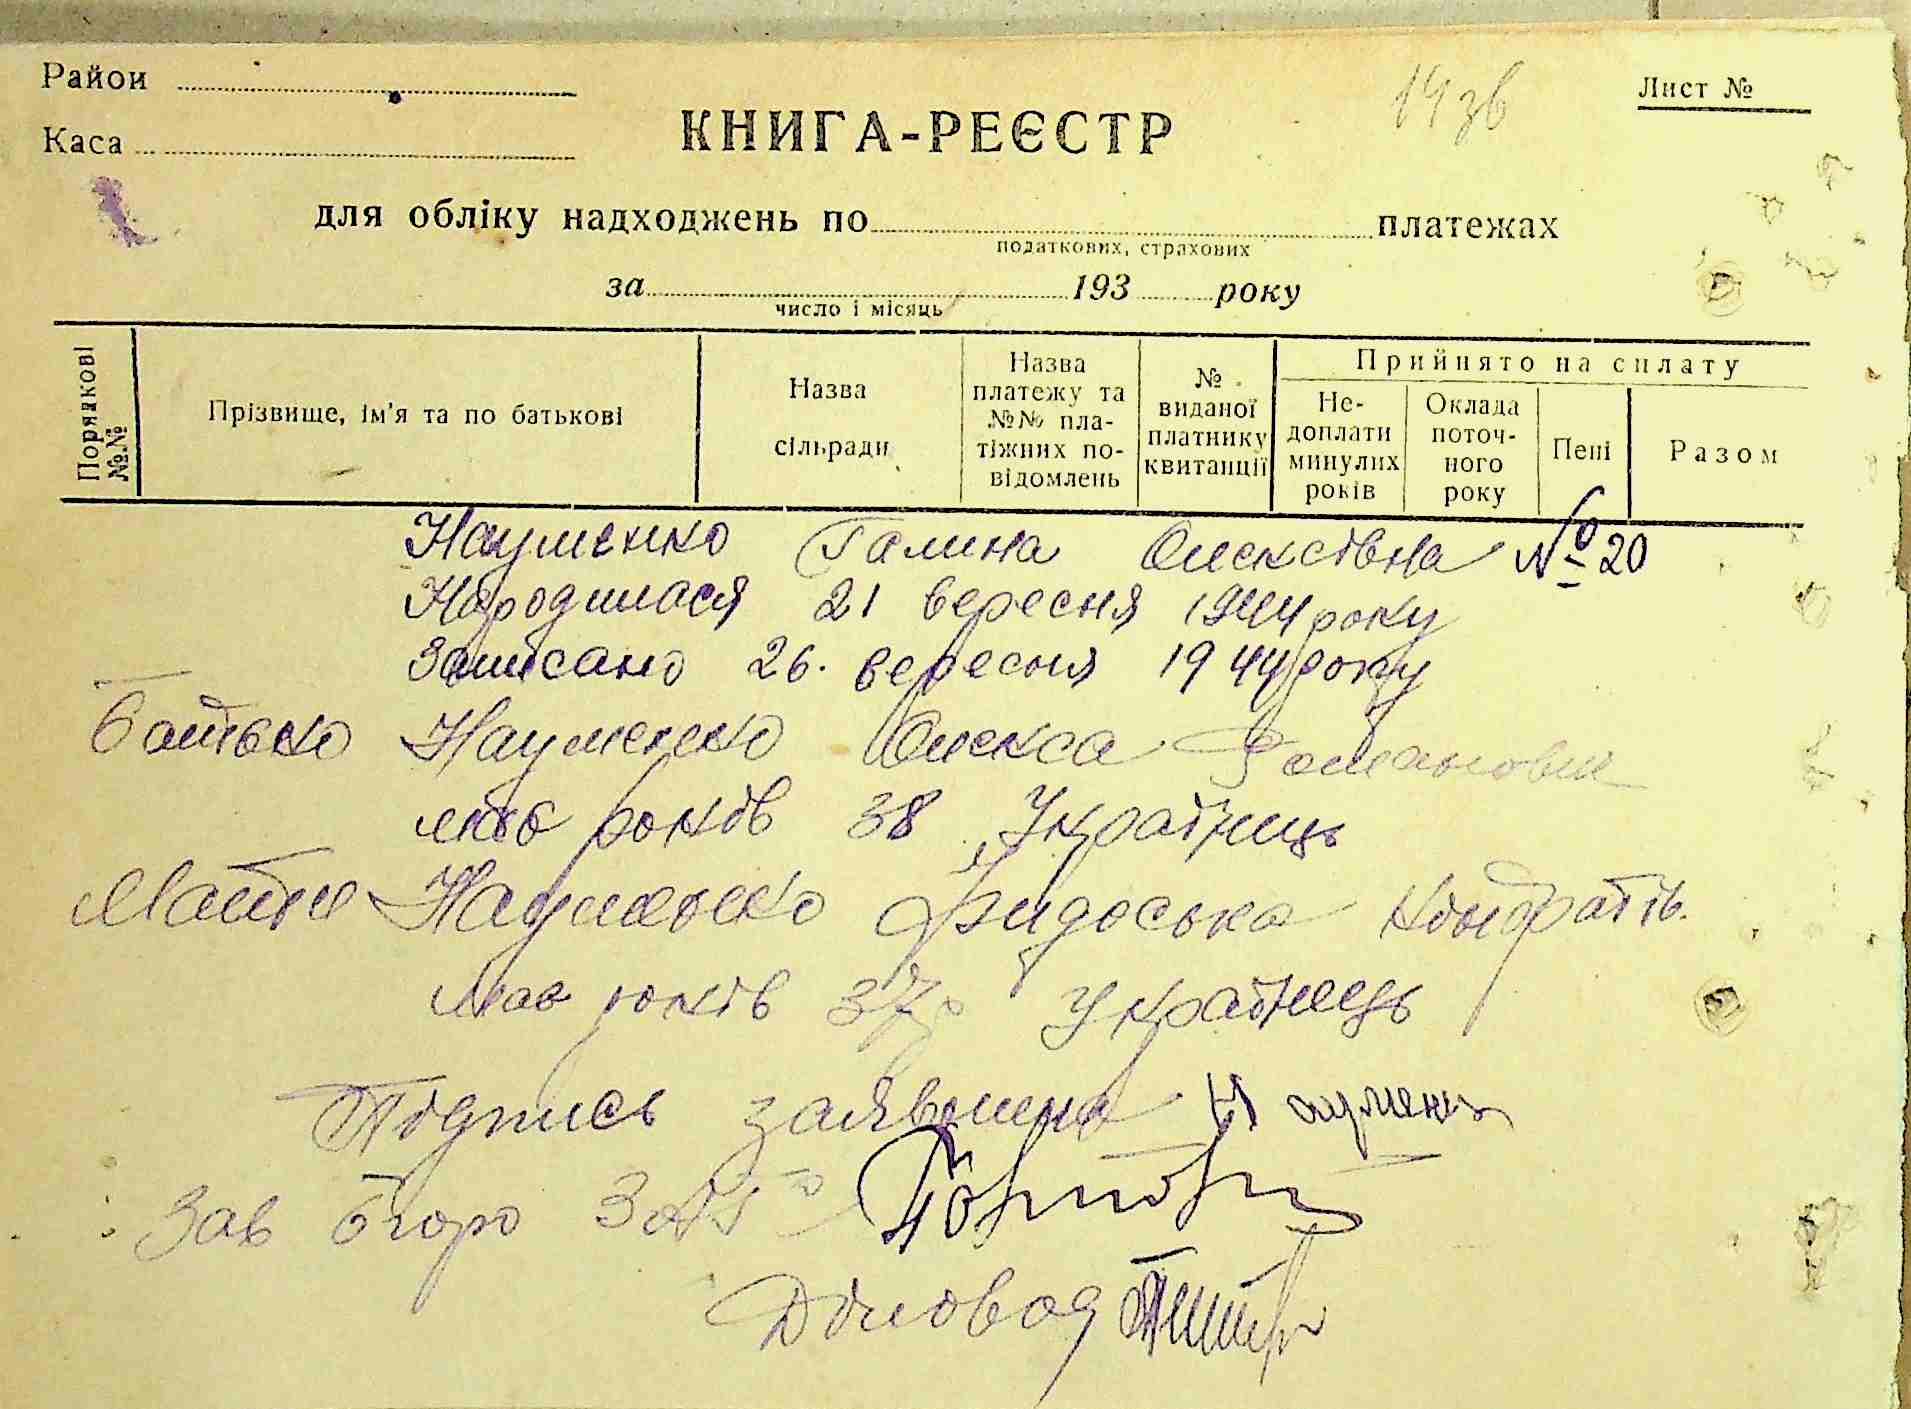 Район
14 зв
Лист №
Каса
КНИГА-РЕЄСТР
для обліку надходжень по платежах
податкових, страхових
за 193 року
число і місяць
Порядкові №№
Прізвище, ім'я та по батькові
Назва сільради
Назва платежу та №№ платіжних повідомлень
№ виданої платнику квитанції
Прийнято на сплату
Недоплати минулих років
Оклада поточного року
Пені
Разом
Науменко Галина Олексіівна № 20
Народилася 21 вересня 1944 року
Записано 26. вересня 1944 року
Батько Науменко Олекса Романович
має років 38 Українець
Мати Науменко Фидоська Кондратів.
має років 37 Українець
Підпись заявника Науменко
Зав бюро ЗАГС
Діловод